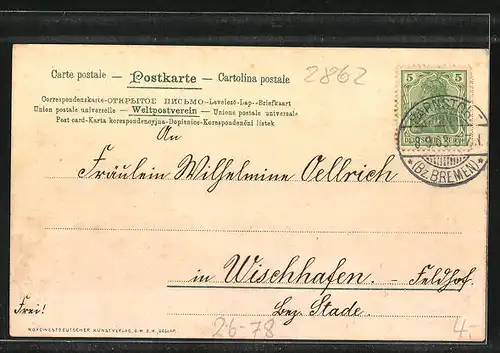 Carte postale — Postkarte — Cartolina postale
2862
Correspondenzkarte-ОТКРЫТОЕ ПИСЬМО-Levelező-Lap--Briefkaart
Union postale universelle — Weltpostverein — Unione postale universale
Post card-Karta korespondencyjna-Dopisnice-Korespondenční lístek
5 5
(BZ.BREMEN)
An
Fräulein Wilhelmine Oellrich
in Wischhafen. - Feldhof.
Bez. Stade.
Frei!
26-78
4.-
NORDWESTDEUTSCHER KUNSTVERLAG, G.M.B.H.